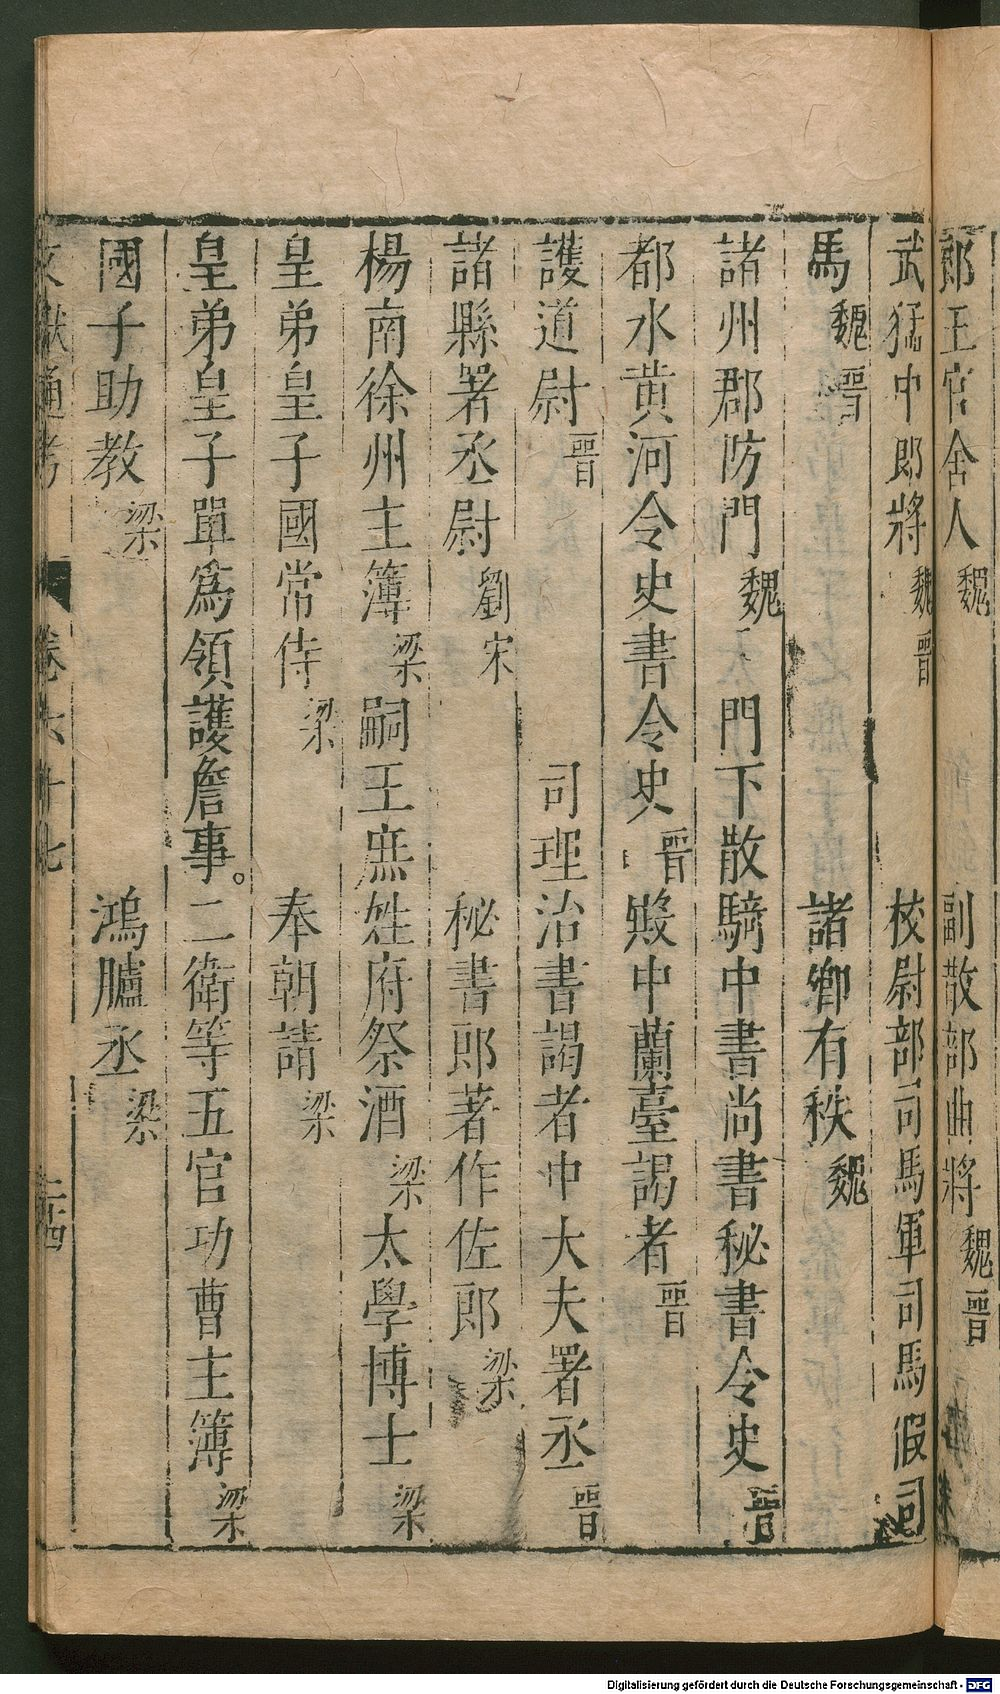 郎王官舍人魏　副散部曲將魏晉
武猛中郎將魏晉　校尉部司馬軍司馬假司
馬魏晉　諸鄉有秩魏
諸州郡防門魏　門下散騎中書尚書秘書令史晉
都水黄河令史書令史晉　殿中蘭臺謁者晉
護道尉晉　司理治書謁者中大夫署丞晉
諸縣署丞尉劉宋　秘書郎著作佐郎梁
楊南徐州主簿梁　嗣王庶姓府祭酒梁　太學博士梁
皇弟皇子國常侍梁　奉朝請梁
皇弟皇子單爲領護詹事。二衛等五官功曹主簿梁
國子助教梁　鴻臚丞梁
文獻通考　卷六十七　二十四
Digitalisierung gefördert durch die Deutsche Forschungsgemeinschaft - DFG